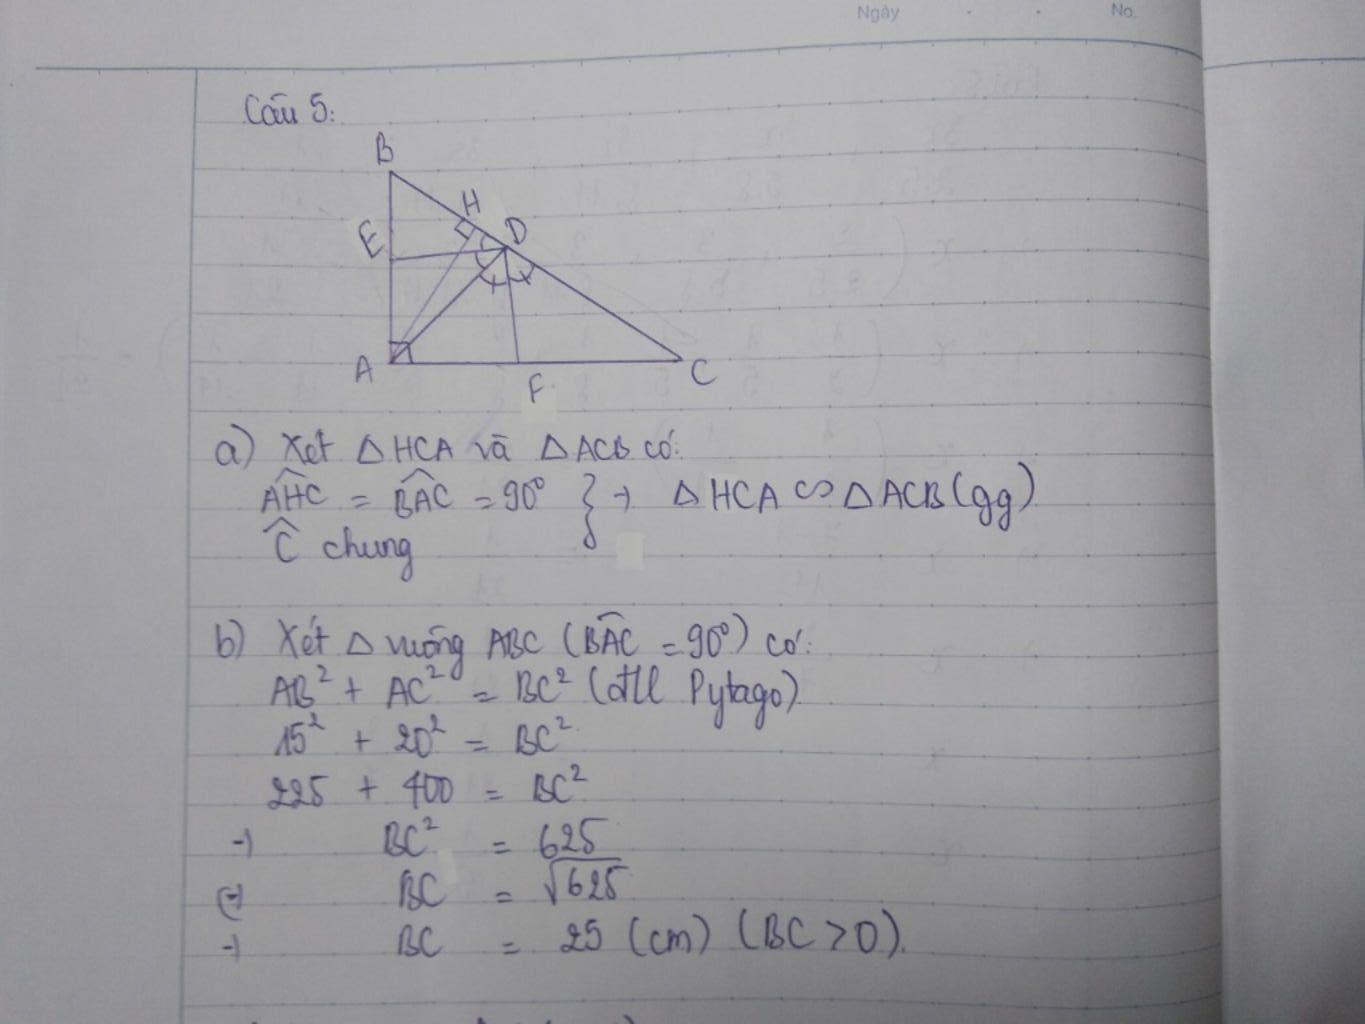 Ngày No.
Câu 5:
B
H
E D
A F C
a) Xét △HCA và △ACB có:
AHC = BAC = 90° } → △HCA ∽ △ACB (gg)
C chung
b) Xét △ vuông ABC (BAC = 90°) có:
AB² + AC² = BC² (đ/l Pytago)
15² + 20² = BC²
225 + 400 = BC²
→ BC² = 625
(→) BC = √625
→ BC = 25 (cm) (BC > 0).